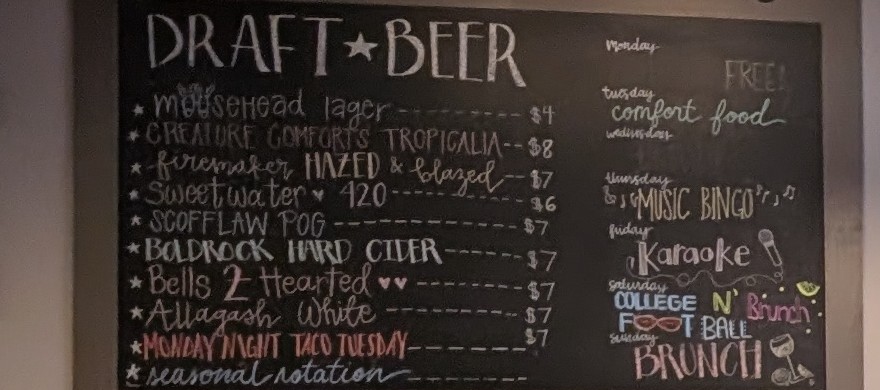 DRAFT★BEER
★ moosehead lager -------- $4
★ CREATURE COMFORTS TROPICALIA -- $8
★ firemaker HAZED & blazed -- $7
★ Sweetwater ♥ 420 -------- $6
★ SCOFFLAW POG -------- $7
★ BOLDROCK HARD CIDER ------ $7
★ Bells 2 Hearted ♥♥ ------ $7
★ Allagash White ------ $7
★ MONDAY NIGHT TACO TUESDAY ------ $7
★ seasonal rotation ------
monday
FREE
tuesday
comfort food
wednesday
thursday
MUSIC BINGO
friday
Karaoke
saturday
COLLEGE N' Brunch
FOOTBALL
sunday
BRUNCH